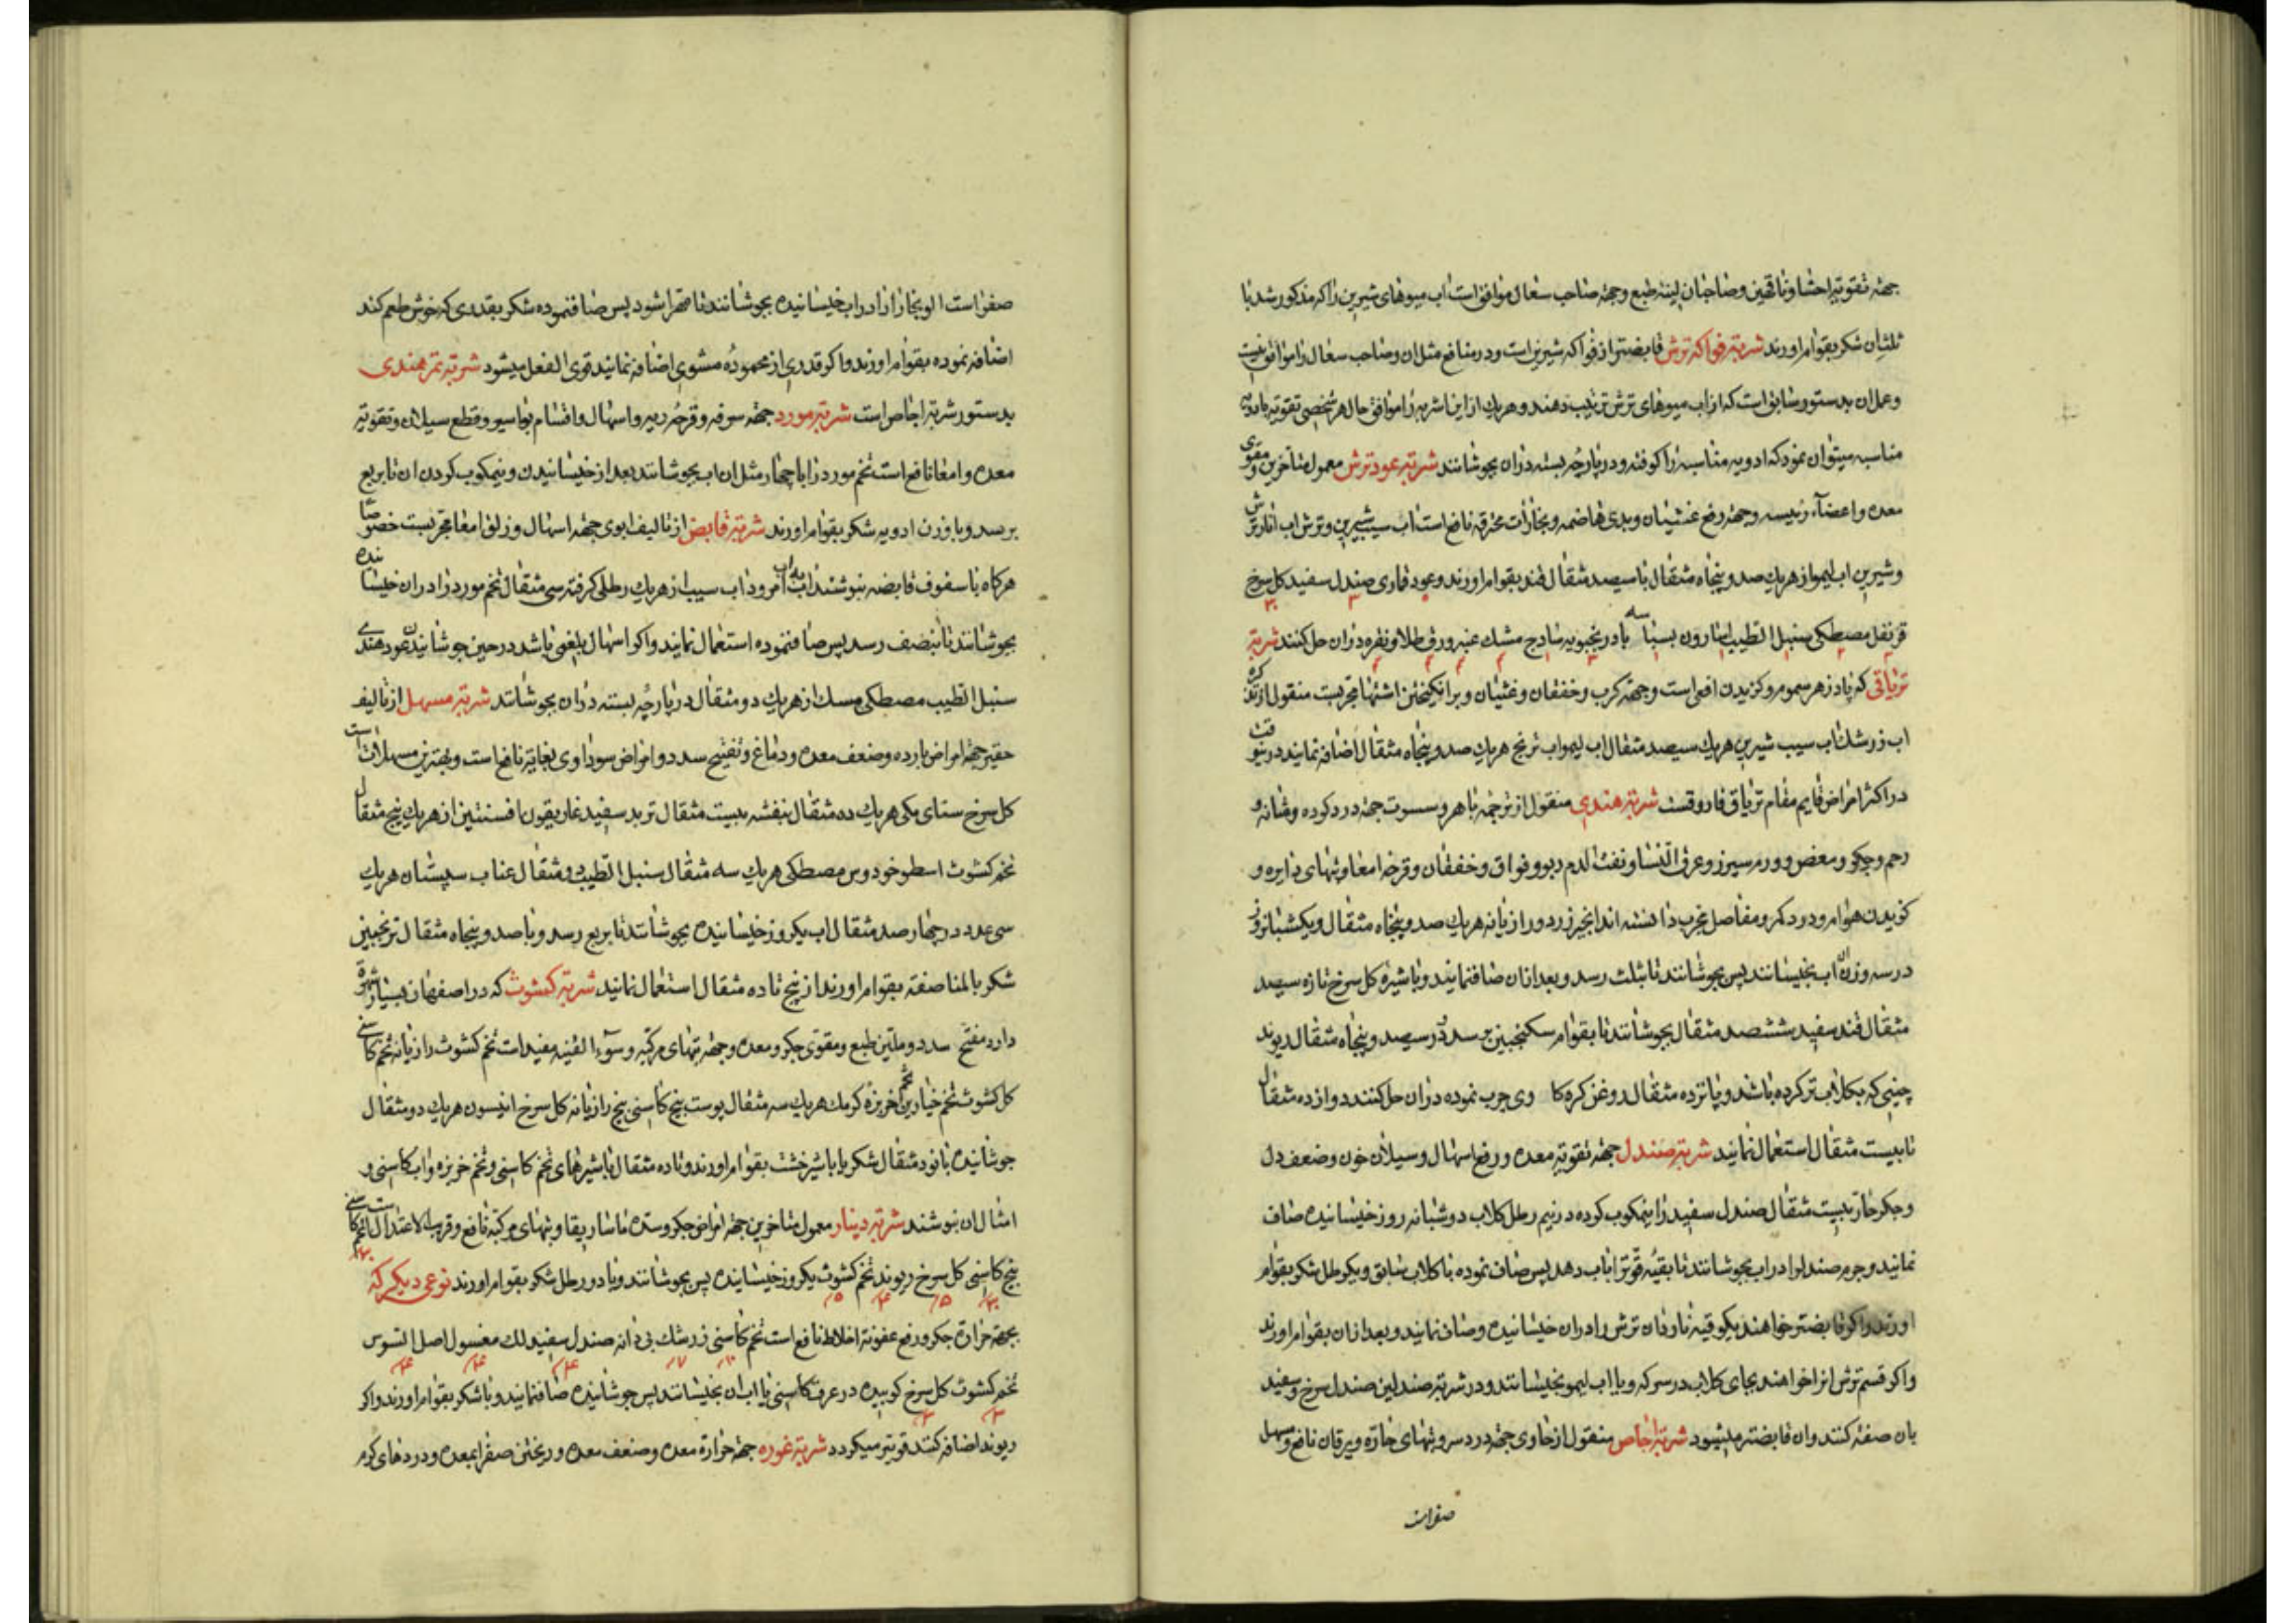 جهة تقویة احشا و ناقهین و صاحبان لینة طبع و جهة صاحب سعال موافق است اب میوهای شیرین را که مذکور شد با
ثلثان شکر بقوام اورند شربة فواکه ترش قابضتر از فواکه شیرین است و در منافع مثل ان و صاحب سعال را موافق نیست
و عمل ان بدستور سابق است که از اب میوهای ترش ترتیب دهند و هریك از این اشربه را موافق حال هر شخصی تقویه بادویه
مناسبه میتوان نمود که ادویه مناسبه را کوفته و در پارچۀ بسته دران بجوشانند شربة عود ترش معمول متاخرین و مقوی
معده و اعضاء رئیسه و جهة رفع غثیان و بدی هاضمه و بخارات محرقه نافع است اب سیب شیرین و ترش اب انار ترش
و شیرین اب لیمو از هریك صد و پنجاه مثقال با سیصد مثقال قند بقوام اورند و عود قماری صندل سفید کل سرخ
قرنفل مصطکی سنبل الطیب اسارون بسباسه بادرنجبویه سادج مشك عنبر ورق طلا و نقره دران حل کنند شربة
تریاقی که پادزهر سموم و کزیدن افعی است و جهة کرب و خفقان و غثیان و برانکیختن اشتها مجربست منقول از تذکره
اب زرشك اب سیب شیرین هریك سیصد مثقال اب لیمو اب ترنج هریك صد و پنجاه مثقال اضافه نمایند
در اکثر امراض قایم مقام تریاق فاروقست شربة هندی منقول از ترجمه جهة درد کرده و مثانه و
رحم و جکر و مغص و ورم سپرز و عرق النسا و نفث الدم و ربو و فواق و خفقان و قرحه امعا و تبهای دایره و
کزیدن هوام و درد کمر و مفاصل مجرب دانسته اند انجیر زرد و رازیانه هریك صد و پنجاه مثقال و یکشبانروز
در سه وزن ان اب بخیسانند پس بجوشانند تا بثلث رسد و بعد ازان صاف نمایند و با شیره کل سرخ تازه سیصد
مثقال قند سفید ششصد مثقال بجوشانند تا بقوام سکنجبین برسد و در سیصد و پنجاه مثقال ریوند
چینی که بکلاب تر کرده باشد و پانزده مثقال روغن کره کاوی چرب نموده دران حل کنند دوازده مثقال
تا بیست مثقال استعمال نمایند شربة صندل جهة تقویة معده و رفع اسهال و سیلان خون و ضعف دل
و جکر حار بیست مثقال صندل سفید را نیمکوب کرده در نیم رطل کلاب دو شبانه روز خیسانیده صاف
نمایند و جرم صندل را در اب بجوشانند تا بقیۀ قوّترا باب دهد پس صاف نموده با کلاب سابق و یکرطل شکر بقوام
اورند و اکر قابضتر خواهند یکوقیه ناردان ترش را دران خیسانیده و صاف نمایند و بعد ازان بقوام اورند
و اکر قسم ترش انرا خواهند بجای کلاب در سرکه و یا اب لیمو بخیسانند و در شربة صندلین صندل سرخ و سفید
بان صفة کنند و ان قابضتر میشود شربة اجاص منقول از حاوی جهة درد سر و تبهای حاره و یرقان نافع و مسهل
صفراست
صفراست الوبخارا را در اب خیسانیده بجوشانند تا مهرا شود پس صاف نموده شکر بقدری که خوش طعم کند
اضافه نموده بقوام اورند و اکر قدری از محمودۀ مشوی اضافه نمایند قوی الفعل میشود شربة تمر هندی
بدستور شربة اجاص است شربة مورد جهة سرفه و قرحۀ ریه و اسهال و اقسام بواسیر و قطع سیلان و تقویة
معده و امعا نافع است تخم مورد را با چهار مثل ان اب بجوشانند بعد از خیسانیدن و نیمکوب کردن ان تا بربع
برسد و با وزن ادویه شکر بقوام اورند شربة قابض از تالیف ابوی جهة اسهال و زلق امعا مجربست خصوصا
هرکاه با سفوف قابضه بنوشند اب به اب امرود اب سیب از هریك رطلی کرفته سی مثقال تخم مورد را دران خیسانیده
بجوشانند تا بنصف رسد پس صاف نموده استعمال نمایند و اکر اسهال بلغمی باشد در حین جوشانیدن عود هندی
سنبل الطیب مصطکی مسك از هریك دو مثقال در پارچۀ بسته دران بجوشانند شربة مسهل از تالیف
حقیر جهة امراض بارده و ضعف معده و دماغ و تفتیح سدد و امراض سوداوی بغایة نافع است و بهترین مسهلات است
کل سرخ سنای مکی هریك ده مثقال بنفشه بیست مثقال تربد سفید غاریقون افسنتین از هریك پنج مثقال
تخم کشوث اسطوخودوس مصطکی هریك سه مثقال سنبل الطیب دو مثقال عناب سپستان هریك
سی عدد در چهار صد مثقال اب یکروز خیسانیده بجوشانند تا بربع رسد و با صد و پنجاه مثقال ترنجبین
شکر بالمناصفه بقوام اورند از پنج تا ده مثقال استعمال نمایند شربة کشوث که در اصفهان بسیار شهرة
دارد مفتح سدد و ملین طبع و مقوی جکر و معده و جهة تبهای مرکبه و سوء القنیه مفید است تخم کشوث رازیانه تخم کاسنی
کل کشوث تخم خیارین تخم خربزه کرمك هریك سه مثقال پوست بیخ کاسنی بیخ رازیانه کل سرخ انیسون هریك دو مثقال
جوشانیده با نود مثقال شکر یا با شیرخشت بقوام اورند و تا ده مثقال با شیرهای تخم کاسنی و تخم خربزه و اب کاسنی و
امثال ان بنوشند شربة دینار معمول متاخرین جهة امراض جکر و سدۀ ماساریقا و تبهای مرکبه نافع و قریب الاعتدال است تخم کاسنی
بیخ کاسنی کل سرخ ریوند تخم کشوث یکروز خیسانیده پس بجوشانند و با دو رطل شکر بقوام اورند نوعی دیکر که
بجهة حرارة جکر و رفع عفونة اخلاط نافع است تخم کاسنی زرشك بی دانه صندل سفید لك مغسول اصل السوس
تخم کشوث کل سرخ کوبیده در عرق کاسنی یا اب ان بخیسانند پس جوشانیده صاف نمایند و با شکر بقوام اورند و اکر
ریوند اضافه کنند قویتر میکردد شربة غوره جهة حرارة معده و ضعف معده و ریختن صفرا بمعده و دردهای کرم